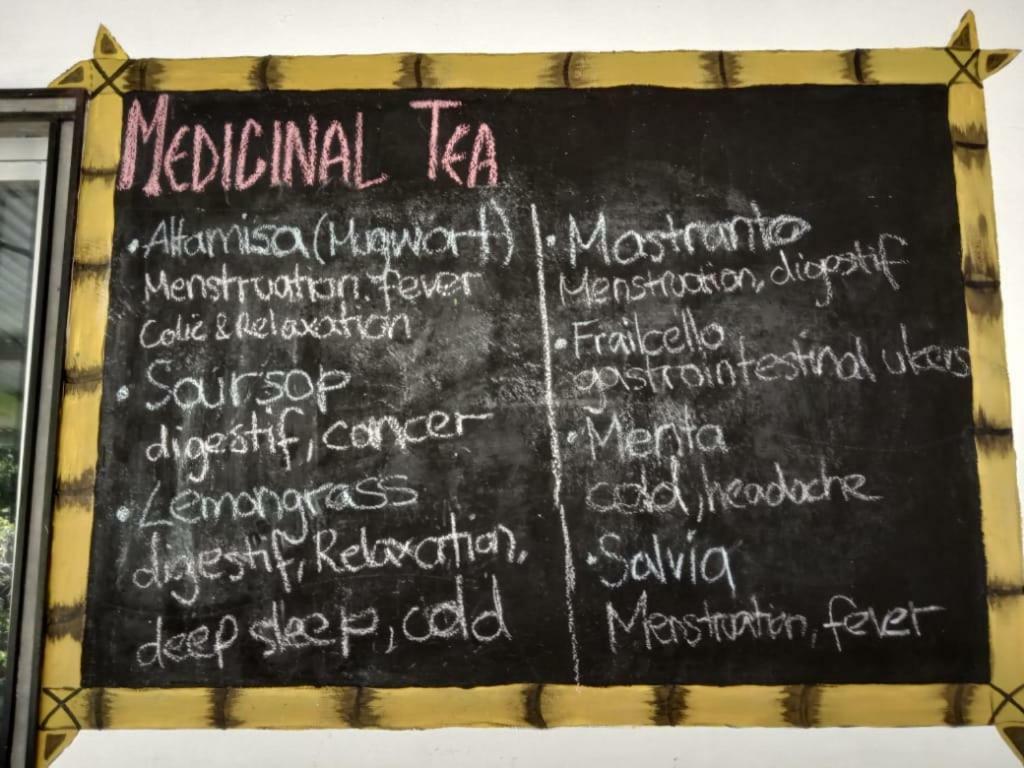 MEDICINAL TEA
• Altamisa (Mugwort)
Menstruation, fever
Colic & Relaxation
• Soursop
digestif, cancer
• Lemongrass
digestif, Relaxcation,
deep sleep, cold
• Mastranto
Menstruation, digestif
• Frailcello
gastrointestinal ulcers
• Menta
cold, headache
• Salvia
Menstruation, fever